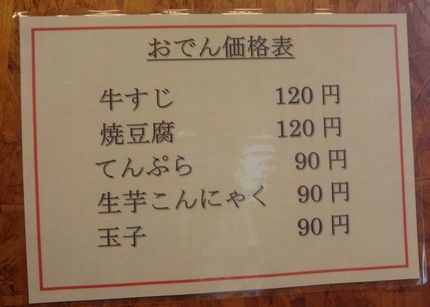 おでん価格表
牛すじ 120 円
焼豆腐 120 円
てんぷら 90 円
生芋こんにゃく 90 円
玉子 90 円